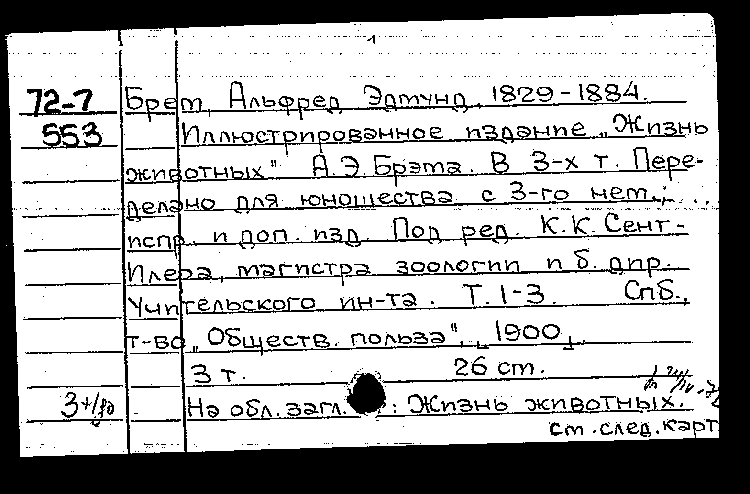 72-7 Брем, Альфред Эдмунд, 1829-1884.
553 Иллюстрированное издание „Жизнь
животных" А.Э.Брэма. В 3-х т. Пере-
делано для юношества с 3-го нем.
испр. и доп. изд. Под ред. К.К.Сент-
Илера, магистра зоологии и б. дир.
Учительского ин-та. Т.1-3. Спб.,
т-во „Обществ. польза", [1900]
3 т. 26 см.
На обл.загл.: Жизнь животных.
см.след.карт